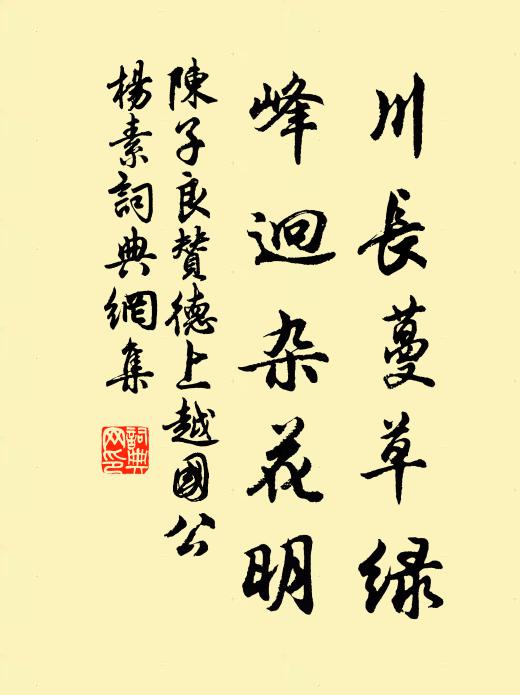 川長蔓草绿
峰迴杂花明
陳子良賛德上越國公
楊素詞典網集
詞典
网印